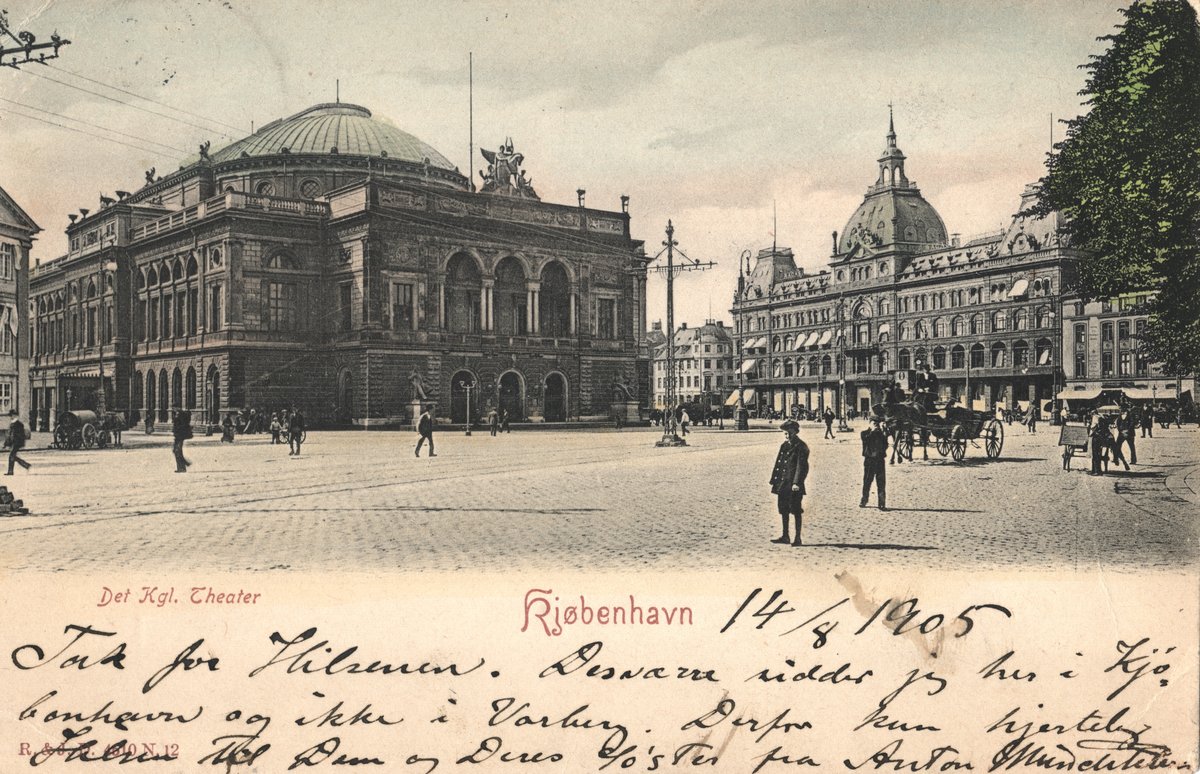 Det Kgl. Theater
Kjøbenhavn
14/8 1905
Tak for Hilsenen. Desværre sidder jeg her i Kjø-
benhavn og ikke i Varberg. Derfor kun hjertelig
R. & J. D. N. 12
Hilsen til Dem og Deres Søster fra Anton